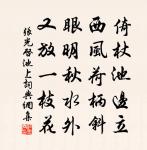 倚杖池邊立
西風荷柄斜
眼明秋水外
又放一枝花
張光啓池上詞典網集